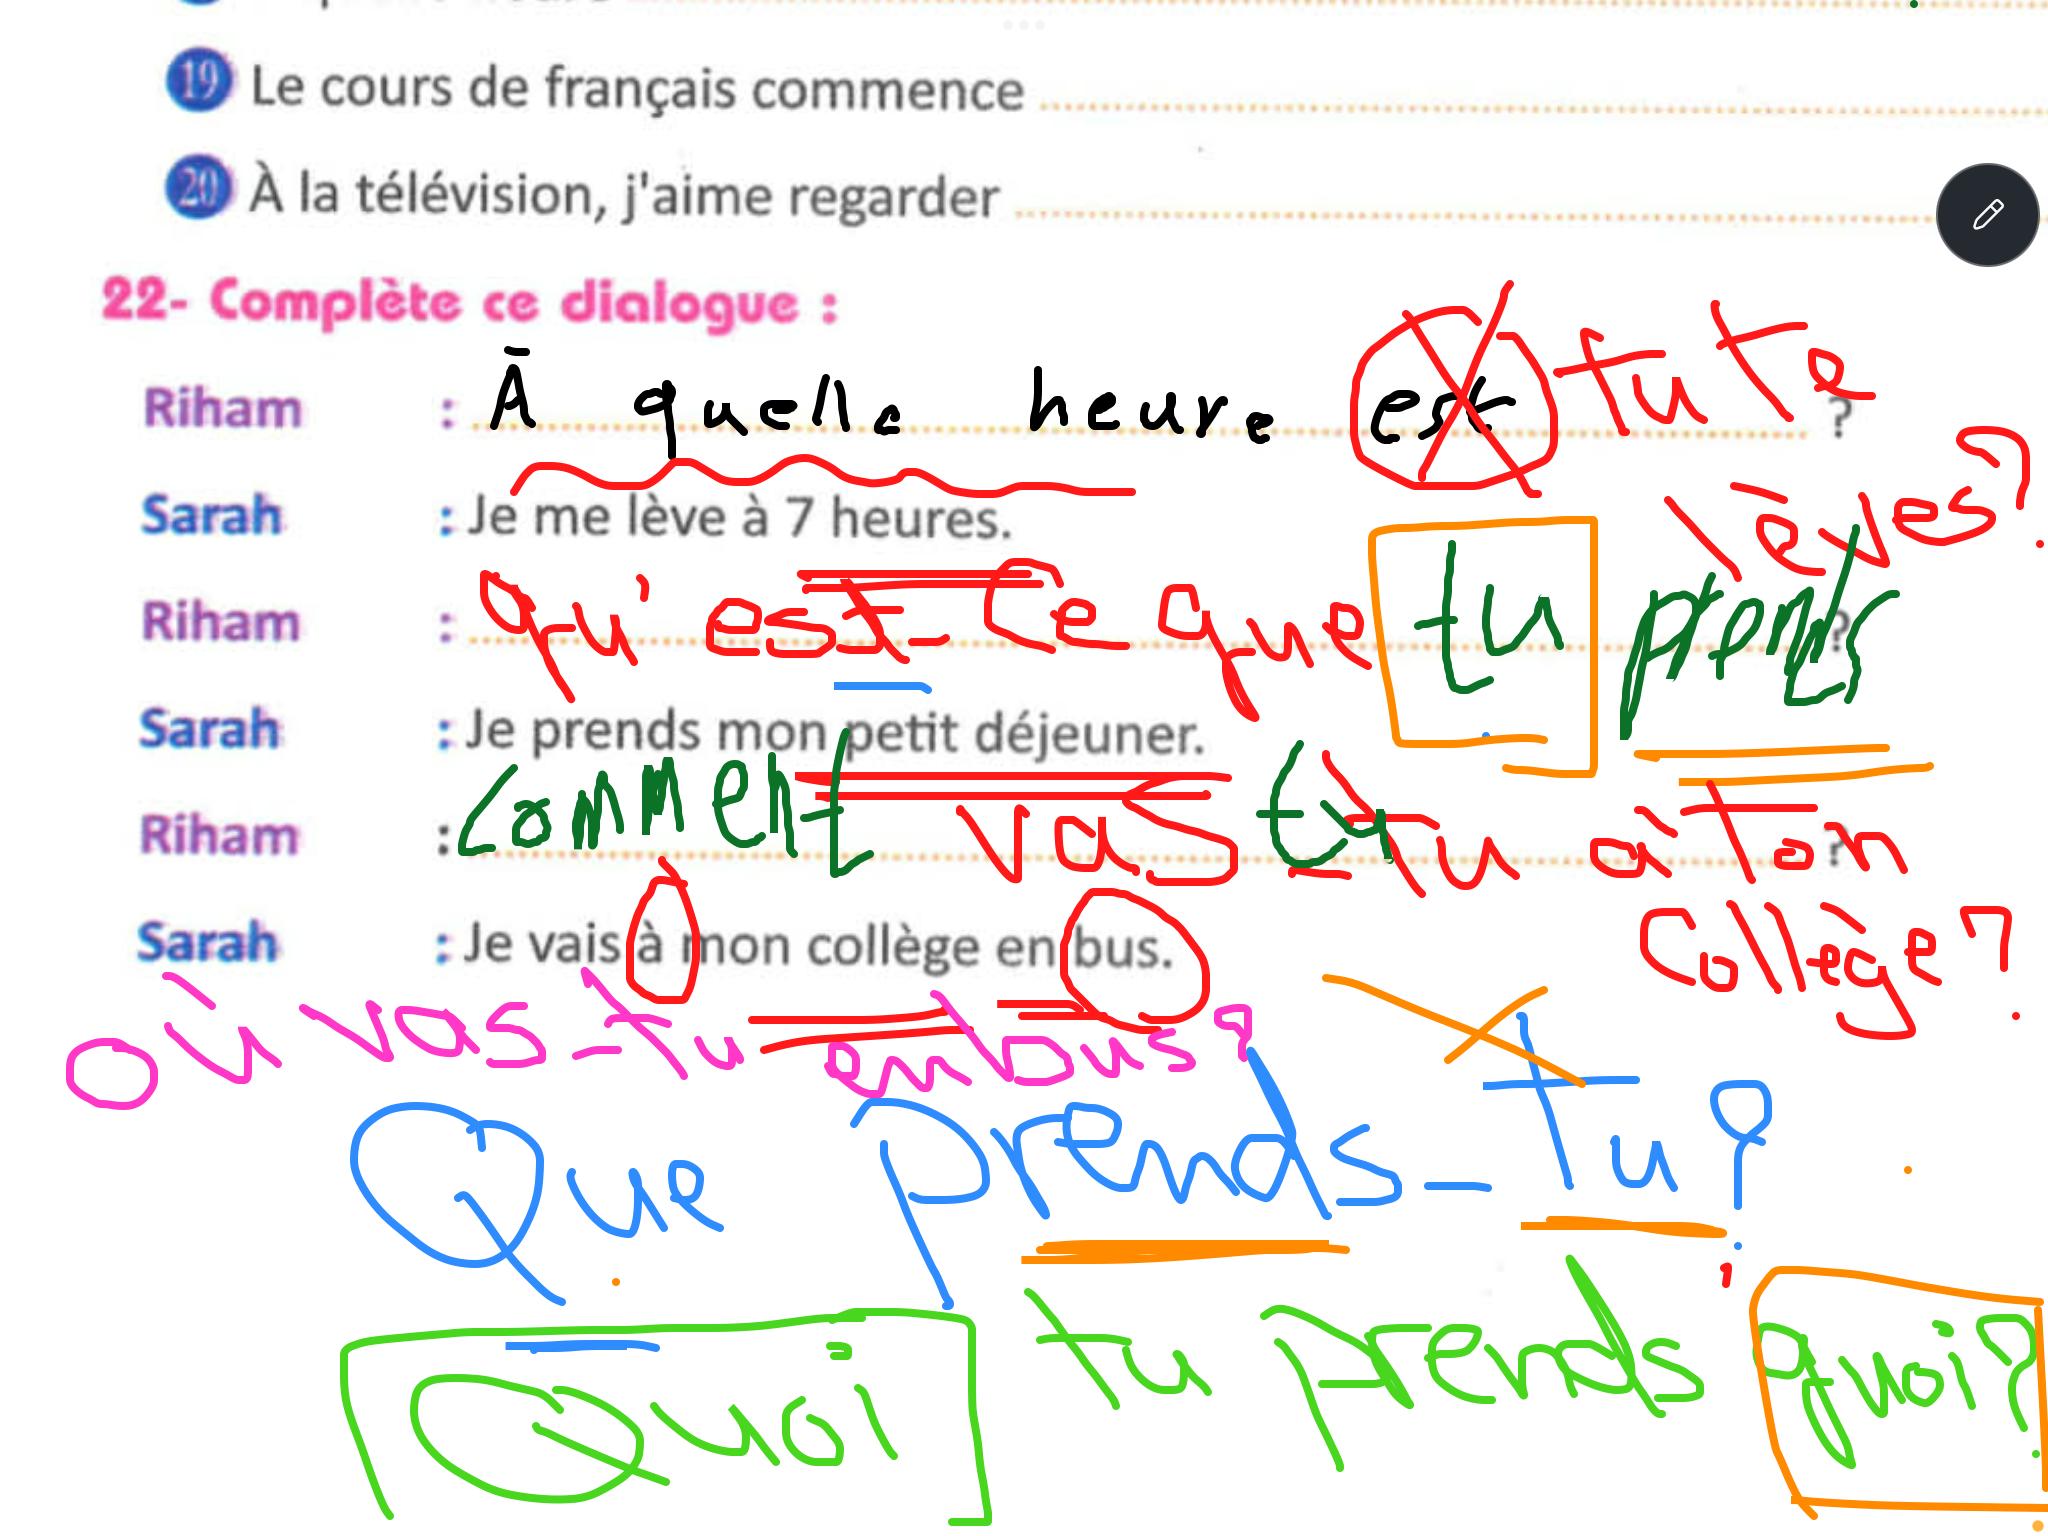 19 Le cours de français commence
20 À la télévision, j'aime regarder
22- Complète ce dialogue :
Riham : À quelle heure est tu te ?
lèves?
Sarah : Je me lève à 7 heures.
Riham : Qu'est-ce que tu prends ?
Sarah : Je prends mon petit déjeuner.
Riham : Comment vas tu tu à ton ?
collège?
Sarah : Je vais à mon collège en bus.
Où vas-tu en bus?
Que prends-tu?
Quoi tu prends quoi?